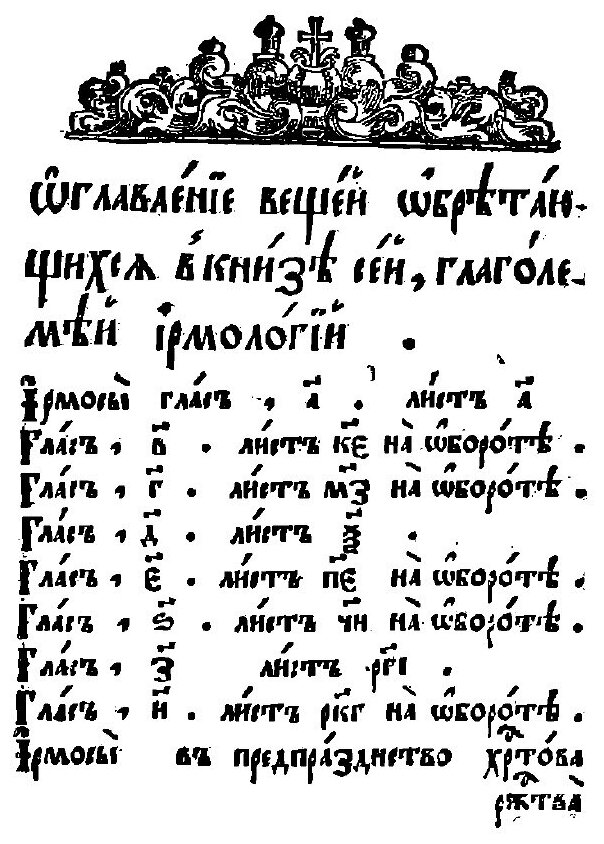 Ѡ҆главле́нїе веще́й ѡ҆брѣта́ю-
щихсѧ в̾ кни́зѣ се́й, глаго́ле-
мѣй і҆рмоло́гїй .
І҆рмосы̀ гла́съ , а҃ . ли́стъ а҃
Гла́съ , в҃ . ли́стъ к҃е на̀ ѡ҆боро́тѣ .
Гла́съ , г҃ . ли́стъ м҃з на̀ ѡ҆боро́тѣ .
Гла́съ , д҃ . ли́стъ .
Гла́съ , є҃ . ли́стъ п҃е на̀ ѡ҆боро́тѣ .
Гла́съ , ѕ҃ . ли́стъ ч҃и на̀ ѡ҆боро́тѣ .
Гла́съ , з҃ ли́стъ рг҃і .
Гла́съ , и҃ . ли́стъ рк҃г на̀ ѡ҆боро́тѣ .
І҆рмосы̀ въ предпра́зднство хрⷭ҇то́ва
ржⷭ҇тва̀